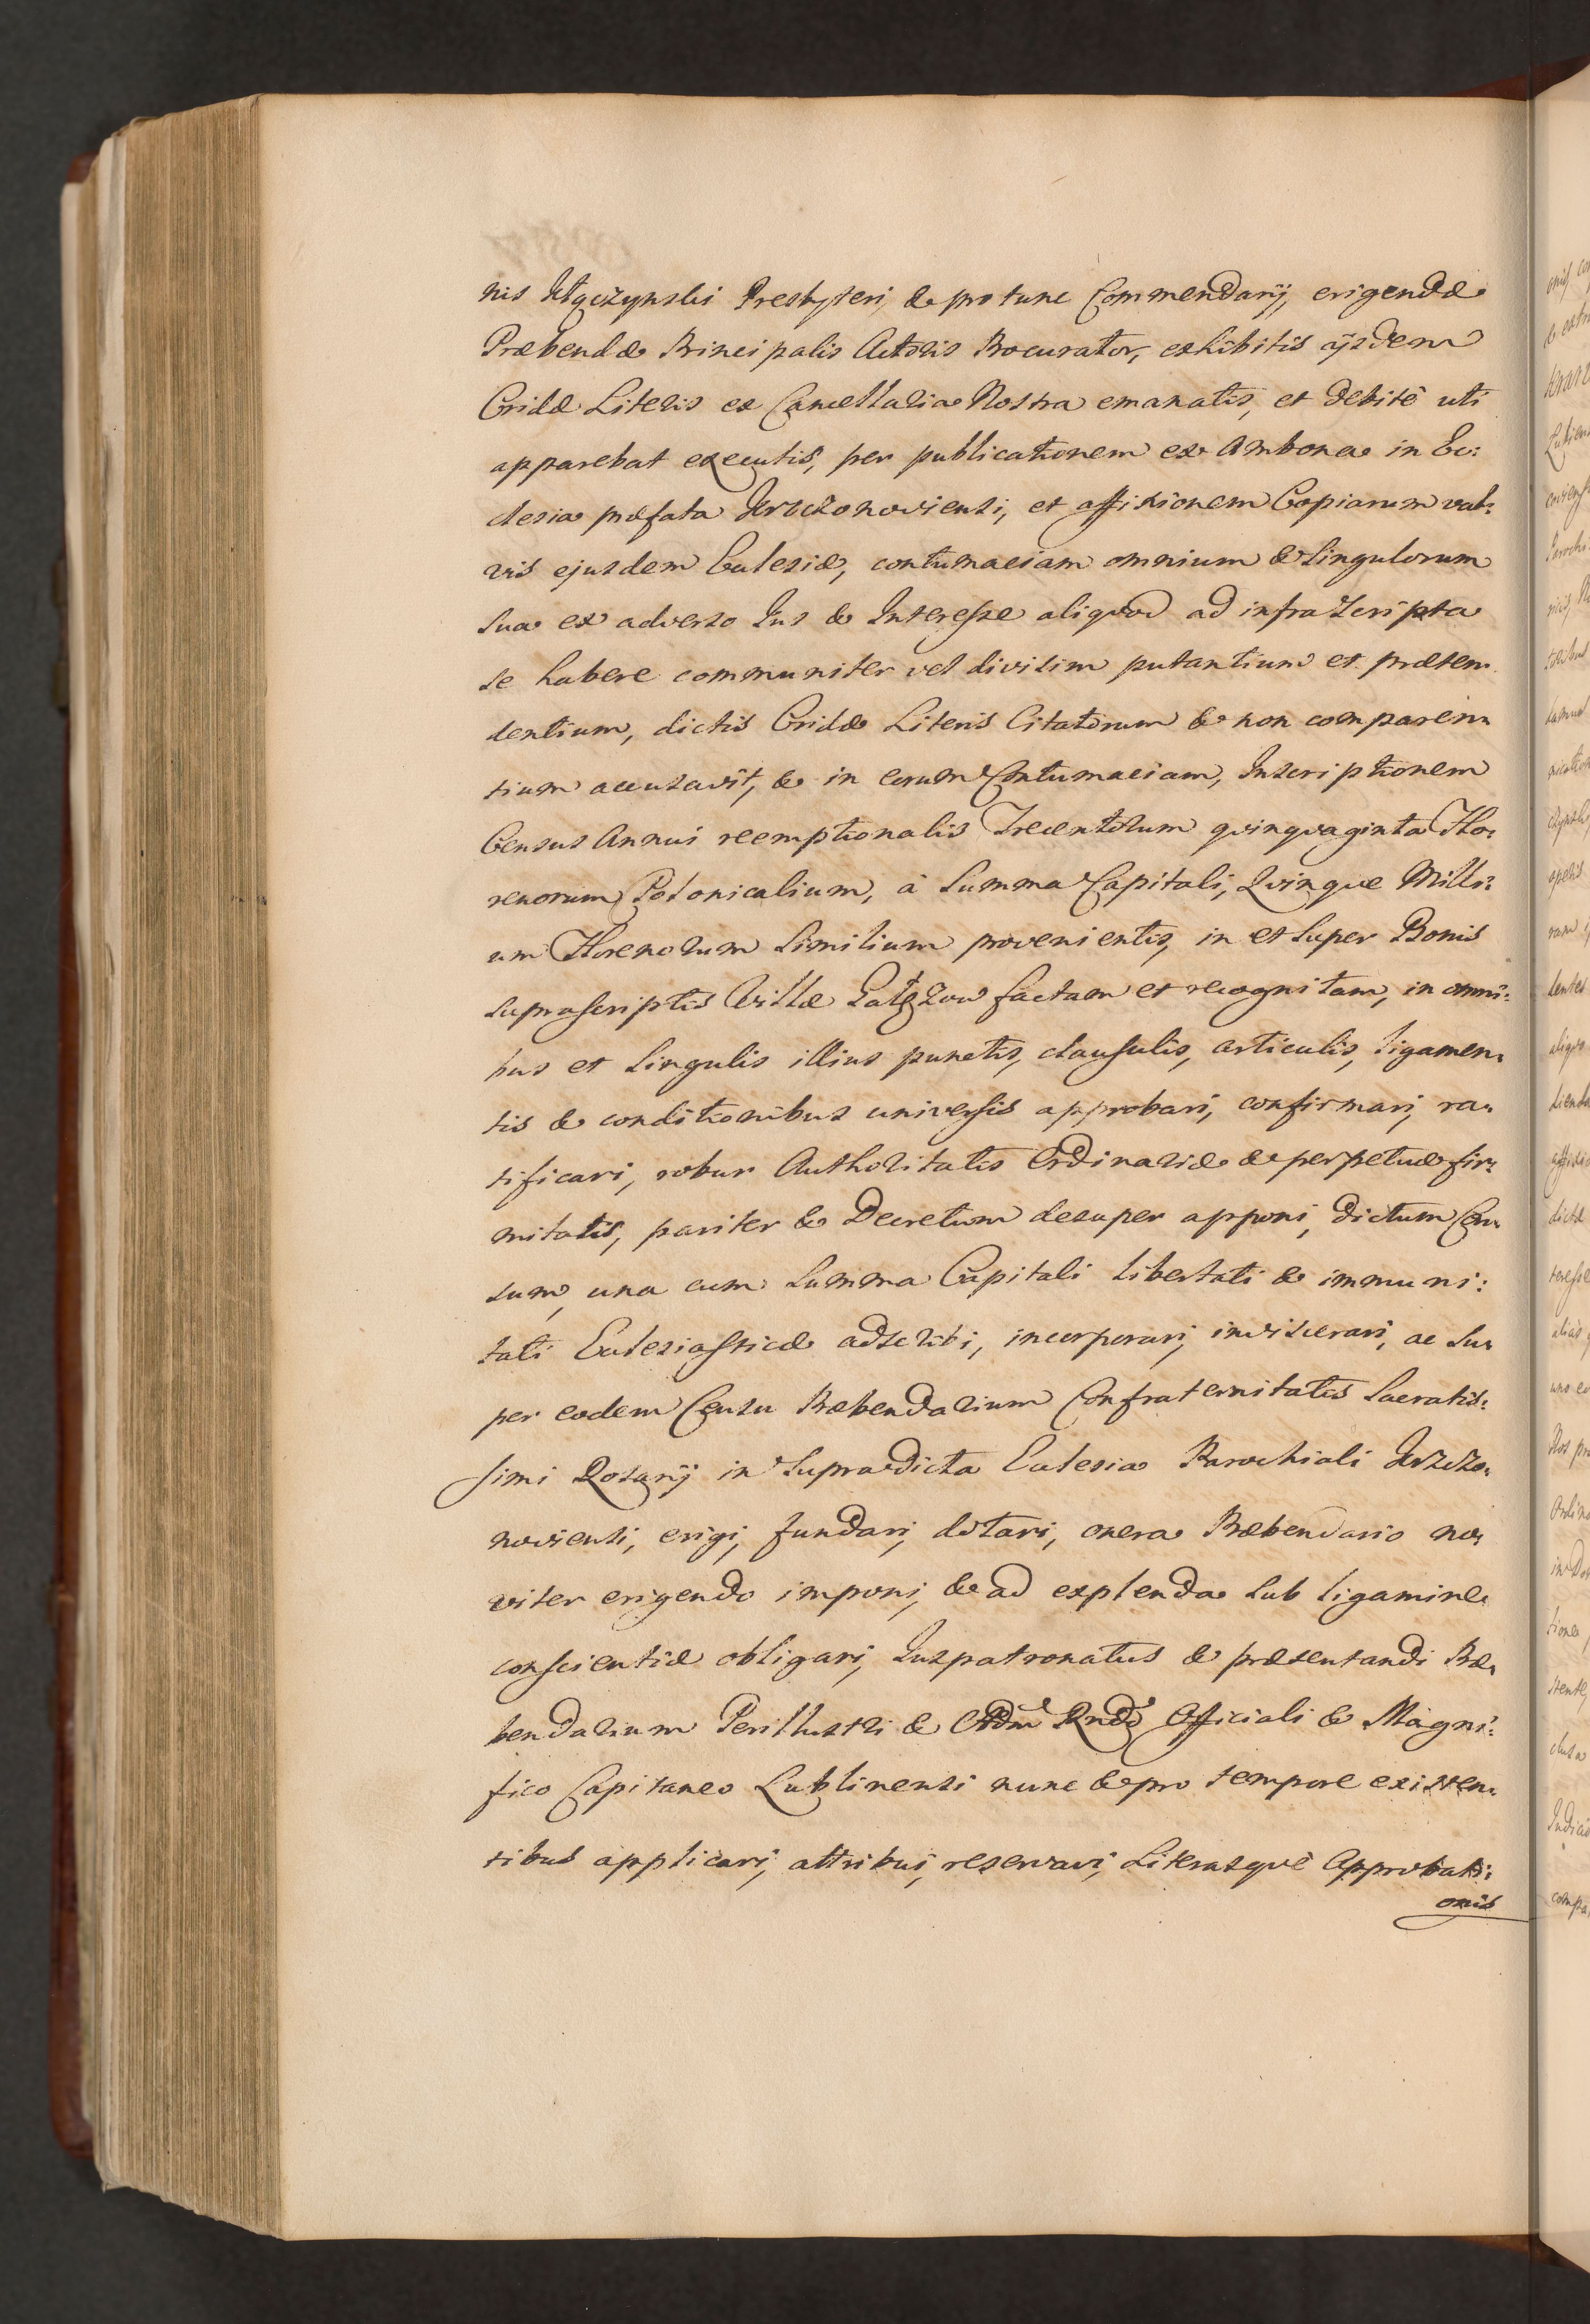 nis Kłączynski Presbyteri, & pro tunc Commendarij, erigendæ
Præbendæ Principalis Actoris Procurator, exhibitis ijsdem
Cridæ Literis ex Cancellaria Nostra emanatis, et debitè uti
apparebat executis, per publicationem ex Ambona in Ec:
clesia præfata Krzczonoviensi, et affixionem Copiarum val:
vis ejusdem Ecclesiæ, contumaciam omnium & Singulorum
sua ex adverso Jus & Interesse aliquod ad infra scripta
se habere communiter vel divisim putantium et præten-
dentium, dictis Cridæ Literis Citatorum & non comparen-
tium accusavit, & in eorum Contumaciam, Inscriptionem
Census Annui reemptionalis Trecentorum quinquaginta Flo:
renorum Polonicalium, à Summa Capitali, Quinque Milli:
um Florenorum Similium provenientis, in et Super Bonis
suprascriptis Villæ factam et recognitam, in omni:
bus et Singulis illius punctis, clausulis, articulis, ligamen-
tis & conditionibus universis approbari, confirmari, ra-
tificari, robur Authoritatis Ordinariæ & perpetuæ fir:
mitatis, pariter & Decretum desuper apponi, dictum Cen-
sum, una cum Summa Capitali libertati & immuni:
tati Ecclesiasticæ adscribi, incorporari, inviscerari, ac Su-
per eodem Censu Præbendarium Confraternitatis Sacratis:
simi Rosarij in Supradicta Ecclesia Parochiali Krzczo-
noviensi, erigi, fundari, dotari, onera Præbendario no-
viter erigendo imponi, & ad explenda sub ligamine
conscientiæ obligari, Juspatronatus & præsentandi Præ-
bendarium Perillustri & Adm Rndo Officiali & Magni:
fico Capitaneo Lublinensi nunc & pro tempore existen-
tibus applicari, attribui, reservari, Literasquè Approbati:
onis